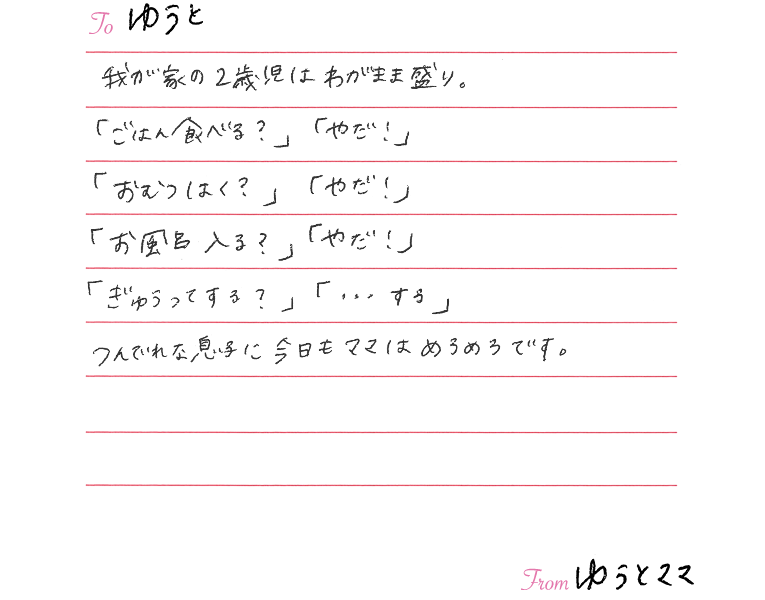 To ゆうと
我が家の2歳児はわがまま盛り。
「ごはん食べる?」「やだ!」
「おむつはく?」「やだ!」
「お風呂入る?」「やだ!」
「ぎゅうってする?」「...する」
つんでれな息子に今日もママはめろめろです。
From ゆうとママ